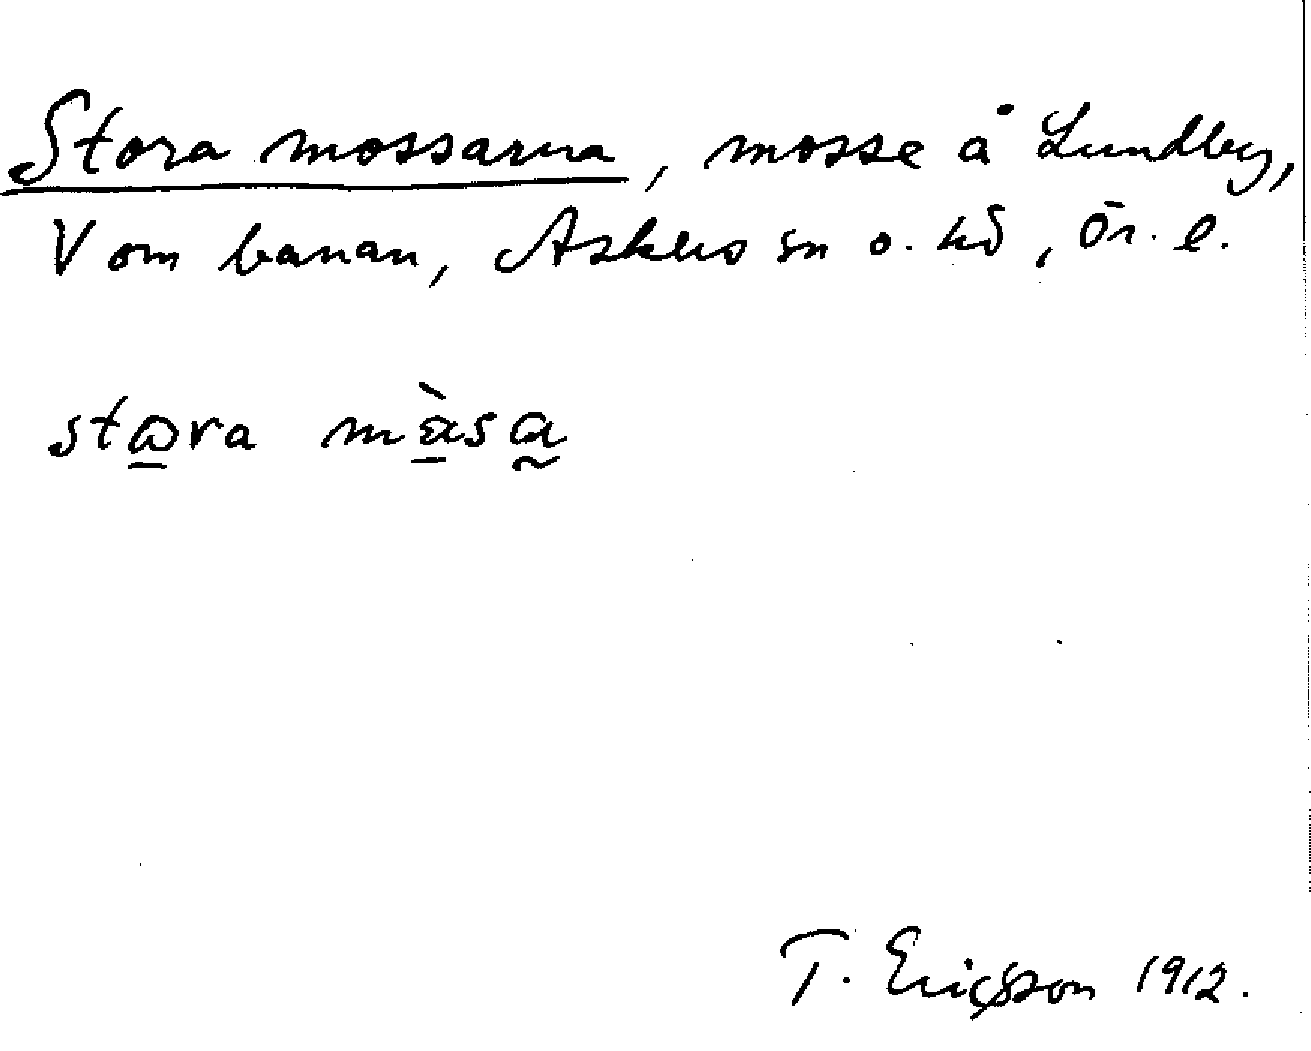 Stora mossarna, mosse å Lundby,
V om banan, Askers sn o. hd, Ör. l.
stωra màsa
T. Ericsson 1912.